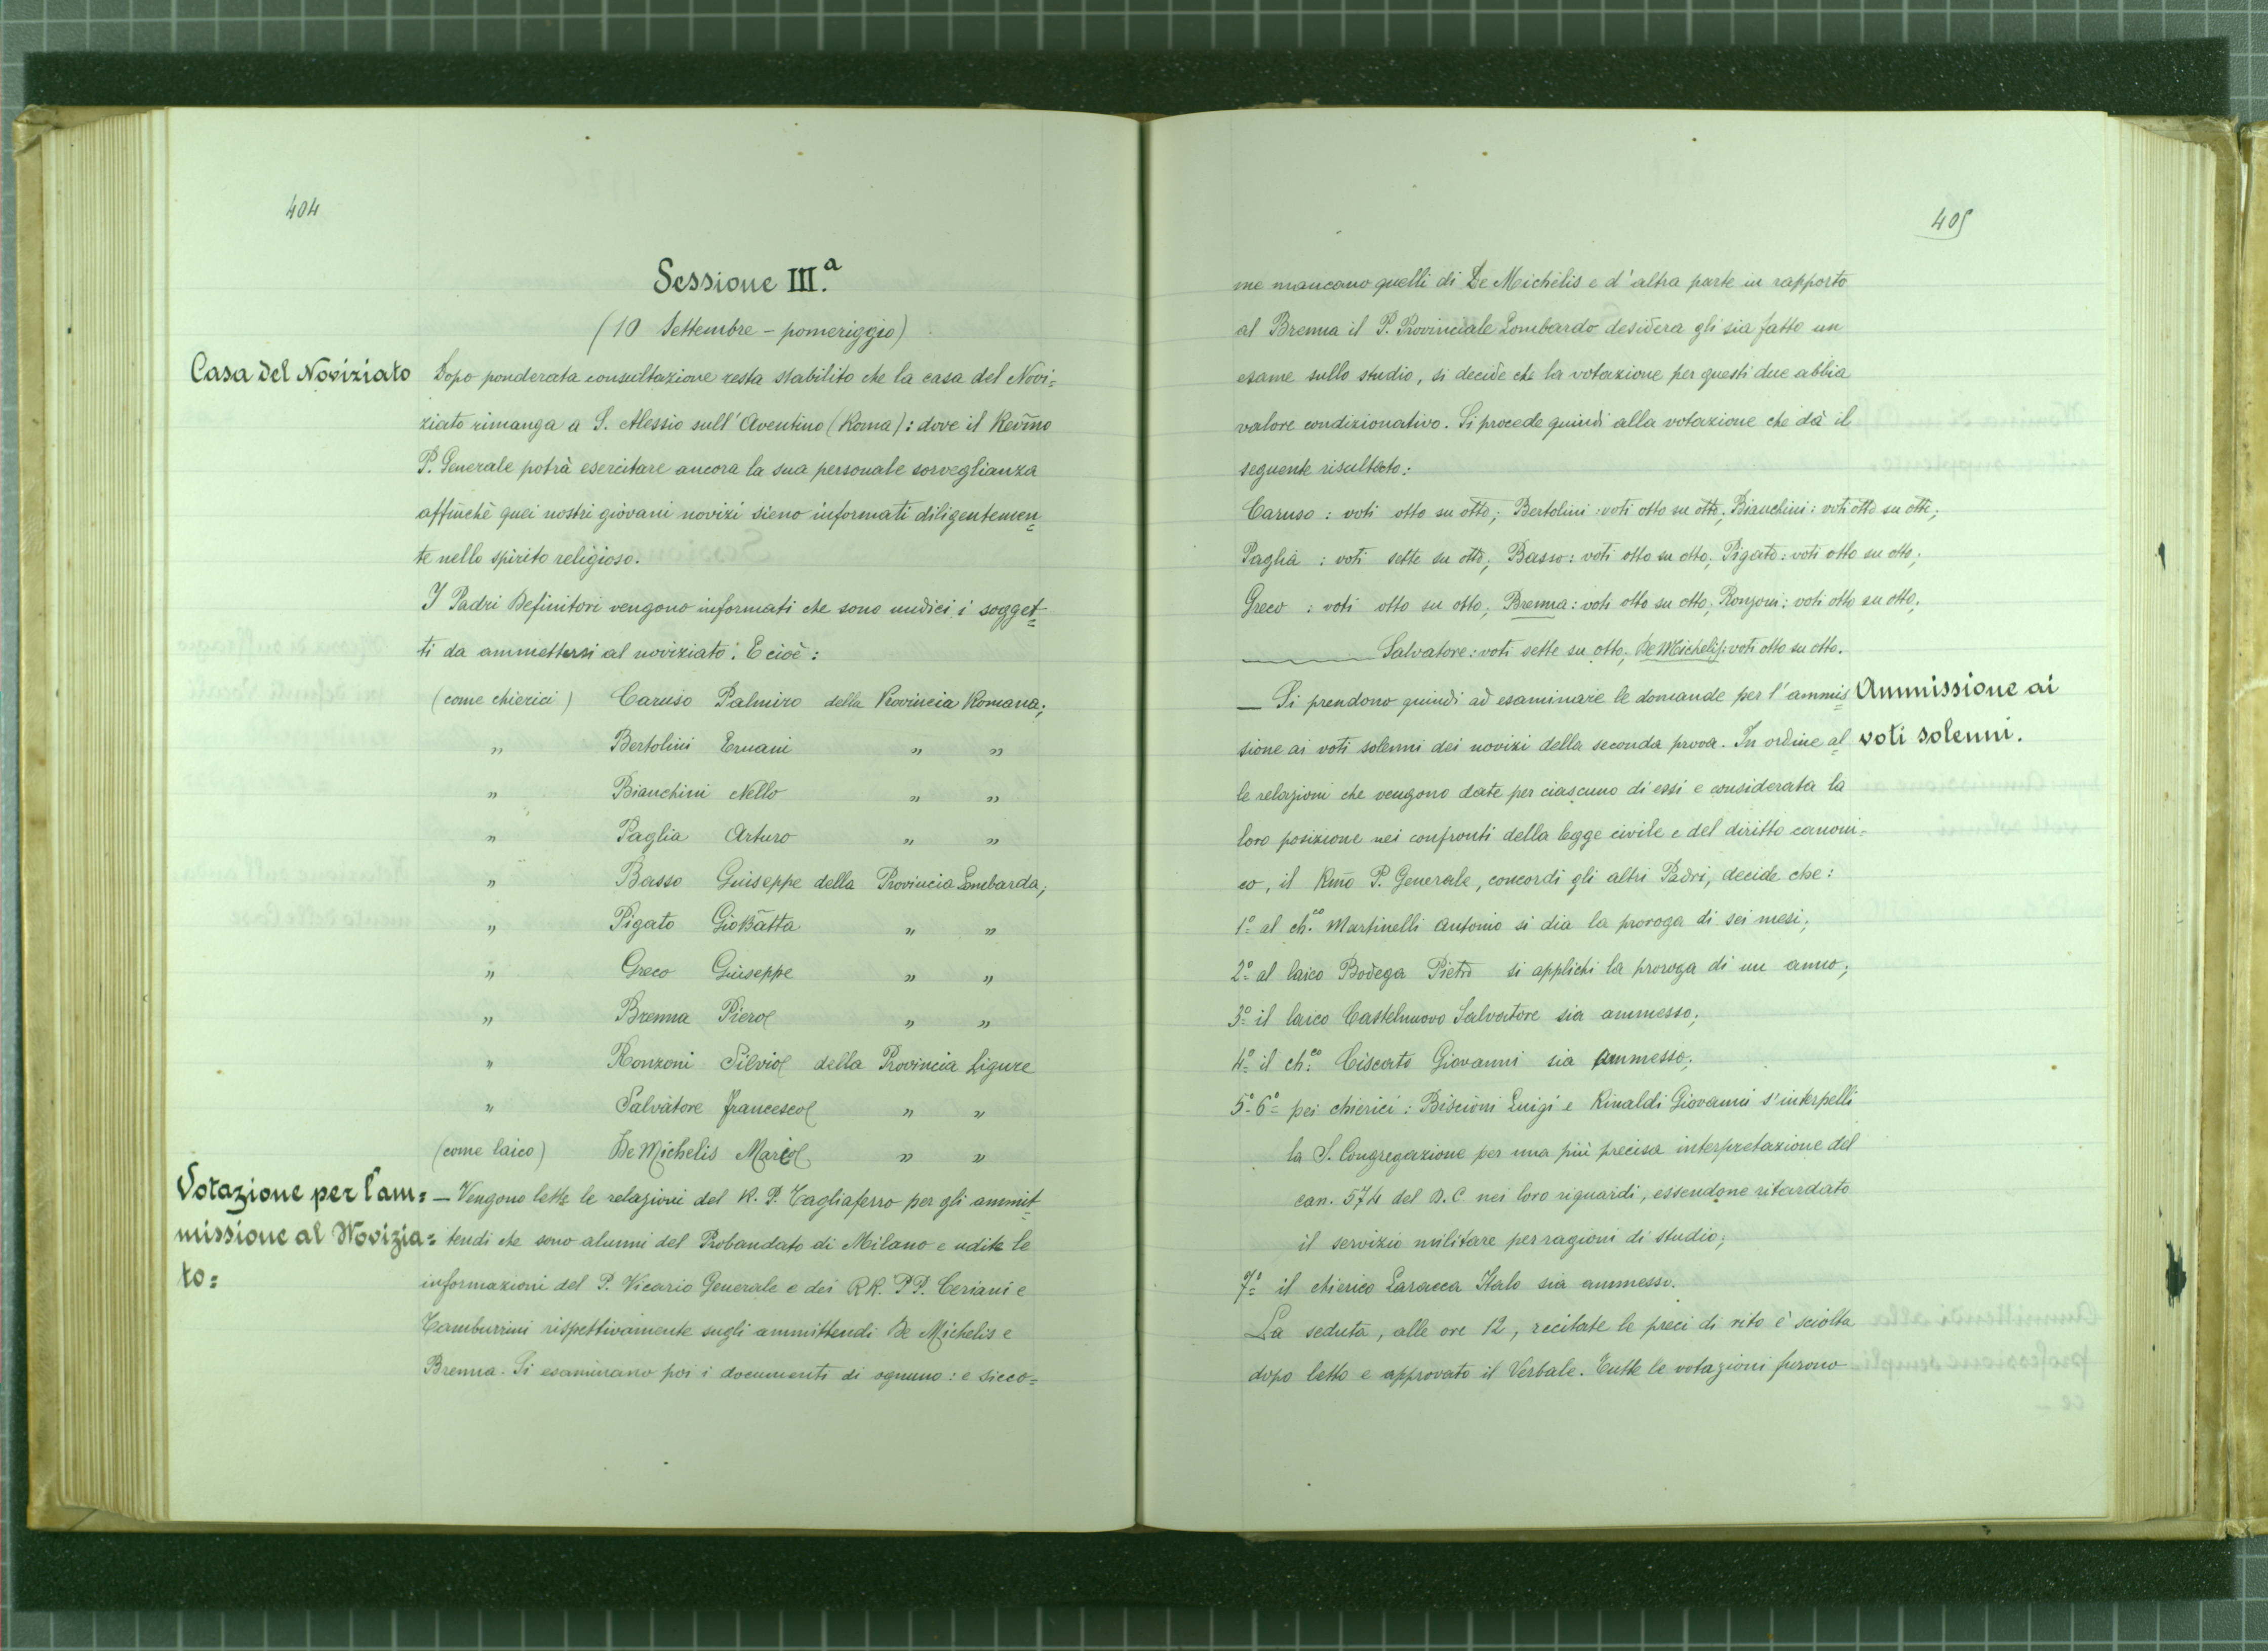 404
Sessione III.a
(10 Settembre - pomeriggio)
Casa del Noviziato
Dopo ponderata consultazione resta stabilito che la casa del Novi=
ziato rimanga a S. Alessio sull'Aventino (Roma): dove il Reṽmo
P. Generale potrà esercitare ancora la sua personale sorveglianza
affinchè quei nostri giovani novizi sieno informati diligentemen=
te nello spirito religioso.
I Padri Definitori vengono informati che sono undici i sogget=
ti da ammettersi al noviziato. E cioè:
(come chierici) Caruso Palmiro della Provincia Romana;
" Bertolini Ernani " "
" Bianchini Nello " "
" Paglia Arturo " "
" Basso Giuseppe della Provincia Lombarda;
" Pigato GioBãtta " "
" Greco Giuseppe " "
" Brenna Piero " "
" Ronzoni Silvio della Provincia Ligure
" Salvatore Francesco " "
(come laico) De Michelis Mario " "
Votazione per l'am=
missione al Novizia=
to=
— Vengono lette le relazioni del R. P. Tagliaferro per gli ammit=
tendi che sono alunni del Probandato di Milano e udite le
informazioni del P. Vicario Generale e dei RR. PP. Ceriani e
Tamburrini rispettivamente sugli ammittendi De Michelis e
Brenna. Si esaminano poi i documenti di ognuno: e sicco=
405
me mancano quelli di De Michelis e d'altra parte in rapporto
al Brenna il P. Provinciale Lombardo desidera gli sia fatto un
esame sullo studio, si decide che la votazione per questi due abbia
valore condizionativo. Si procede quindi alla votazione che dà il
seguente risultato:
Caruso: voti otto su otto; Bertolini: voti otto su otto; Bianchini: voti otto su otto;
Paglia: voti sette su otto; Basso: voti otto su otto; Pigato: voti otto su otto;
Greco: voti otto su otto; Brenna: voti otto su otto; Ronzoni: voti otto su otto;
Salvatore: voti sette su otto; De Michelis: voti otto su otto.
— Si prendono quindi ad esaminare le domande per l'ammis=
sione ai voti solenni dei novizi della seconda prova. In ordine al=
le relazioni che vengono date per ciascuno di essi e considerata la
loro posizione nei confronti della legge civile e del diritto canoni=
co, il Rm̃o P. Generale, concordi gli altri Padri, decide che:
1º al ch.co Martinelli Antonio si dia la proroga di sei mesi;
2º al laico Bodega Pietro si applichi la proroga di un anno;
3º il laico Castelnuovo Salvatore sia ammesso;
4º il ch.co Ciscato Giovanni sia ammesso;
5º-6º pei chierici: Biscioni Luigi e Rinaldi Giovanni s'interpelli
la S. Congregazione per una più precisa interpretazione del
can. 574 del D.C. nei loro riguardi, essendone ritardato
il servizio militare per ragioni di studio;
7º il chierico Laracca Italo sia ammesso.
La seduta, alle ore 12, recitate le preci di rito è sciolta
dopo letto e approvato il Verbale. Tutte le votazioni furono
Ammissione ai
voti solenni.